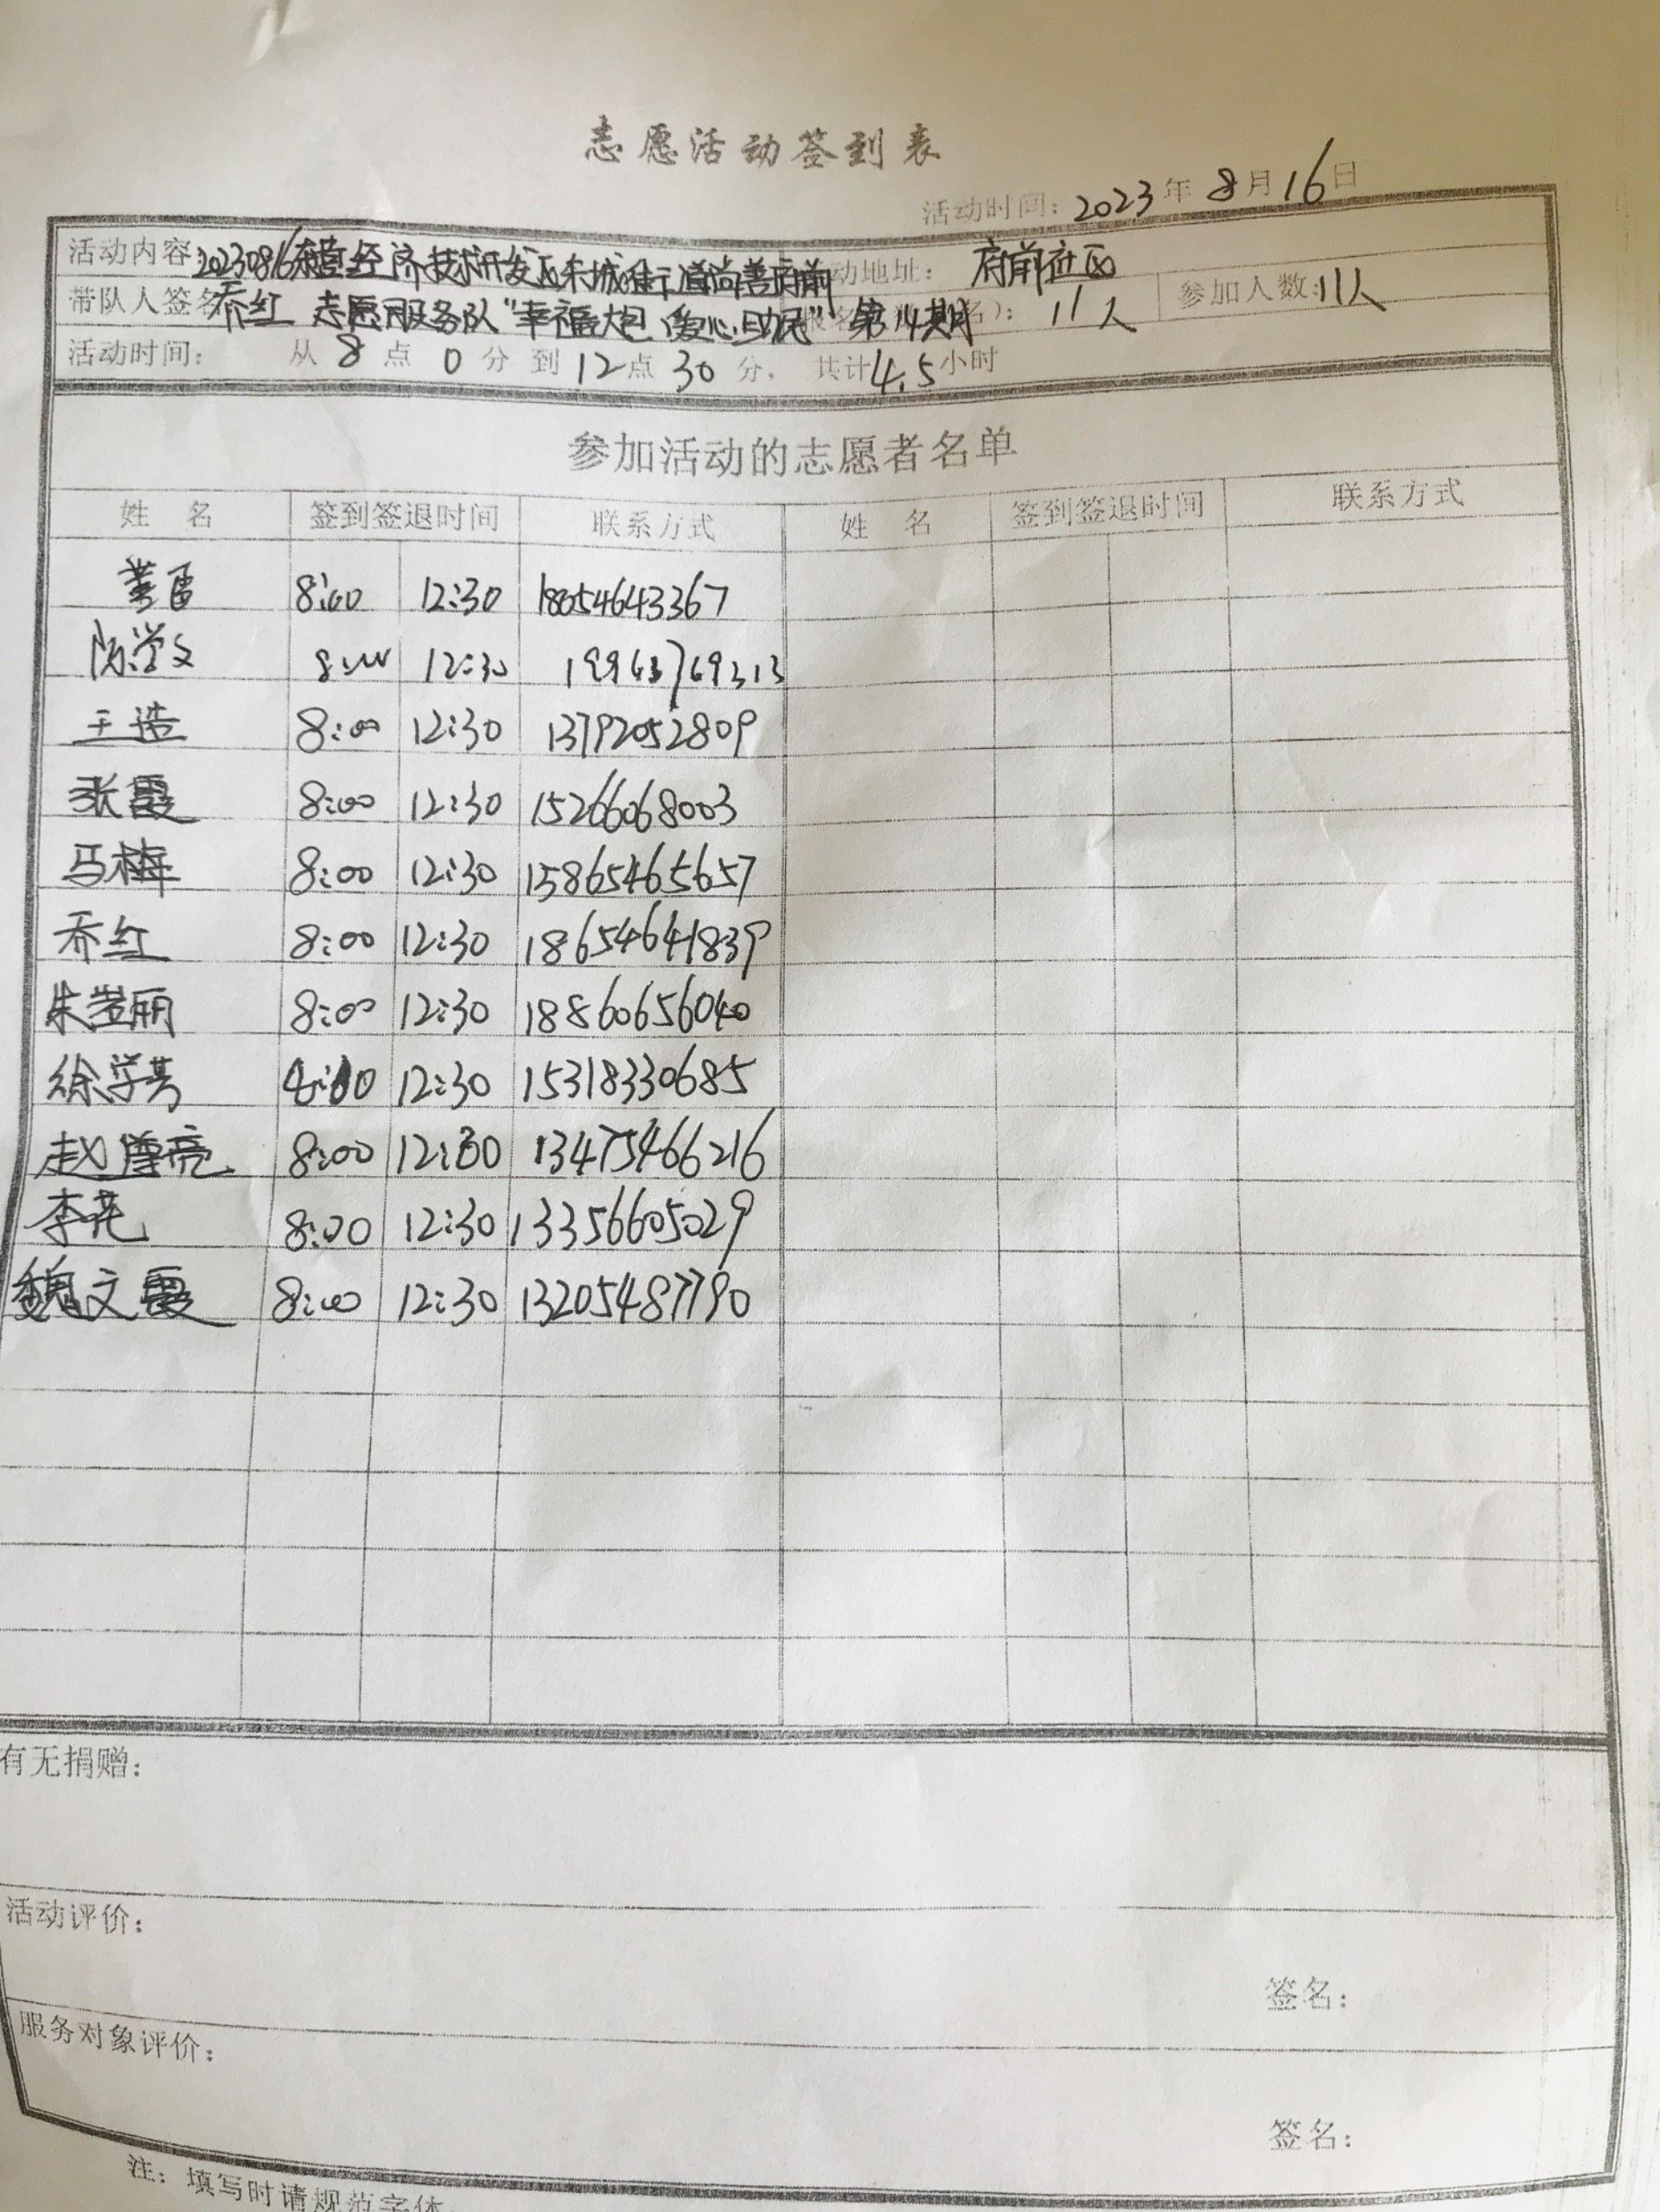 志愿活动签到表
活动时间：2023年8月16日
活动内容 20230816东营经济技术开发区东城街道尚善府前 动地址： 府前社区
带队人签名 乔红 志愿服务队“幸福大包、爱心助民”第14期 报名 名）： 11人 参加人数：11人
活动时间： 从8点0分到12点30分， 共计4.5小时
参加活动的志愿者名单
姓 名 签到签退时间 联系方式 姓 名 签到签退时间 联系方式
8:00 12:30 18054643367
陈学文 8:00 12:30 19963769313
王浩 8:00 12:30 13792052809
张霞 8:00 12:30 15266068003
马梅 8:00 12:30 15865465657
乔红 8:00 12:30 18654641839
朱莹丽 8:00 12:30 18860656040
徐学芳 12:30 15318330685
赵 亮 8:00 12:30 13475466216
李花 8:00 12:30 13356605029
魏文霞 8:00 12:30 13205487790
有无捐赠：
活动评价：
签名：
服务对象评价：
签名：
注：填写时请规范字体